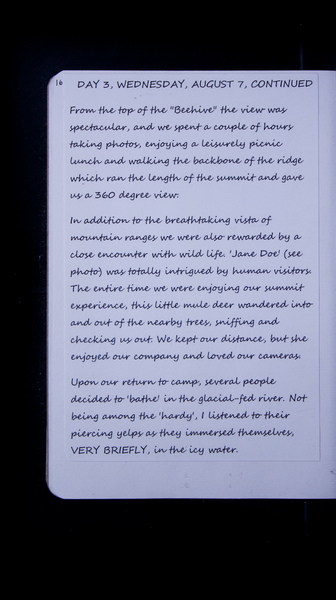 16
DAY 3, WEDNESDAY, AUGUST 7, CONTINUED
From the top of the "Beehive" the view was
spectacular, and we spent a couple of hours
taking photos, enjoying a leisurely picnic
lunch and walking the backbone of the ridge
which ran the length of the summit and gave
us a 360 degree view.
In addition to the breathtaking vista of
mountain ranges we were also rewarded by a
close encounter with wild life. 'Jane Doe' (see
photo) was totally intrigued by human visitors.
The entire time we were enjoying our summit
experience, this little mule deer wandered into
and out of the nearby trees, sniffing and
checking us out. We kept our distance, but she
enjoyed our company and loved our cameras.
Upon our return to camp, several people
decided to 'bathe' in the glacial-fed river. Not
being among the 'hardy', I listened to their
piercing yelps as they immersed themselves,
VERY BRIEFLY, in the icy water.